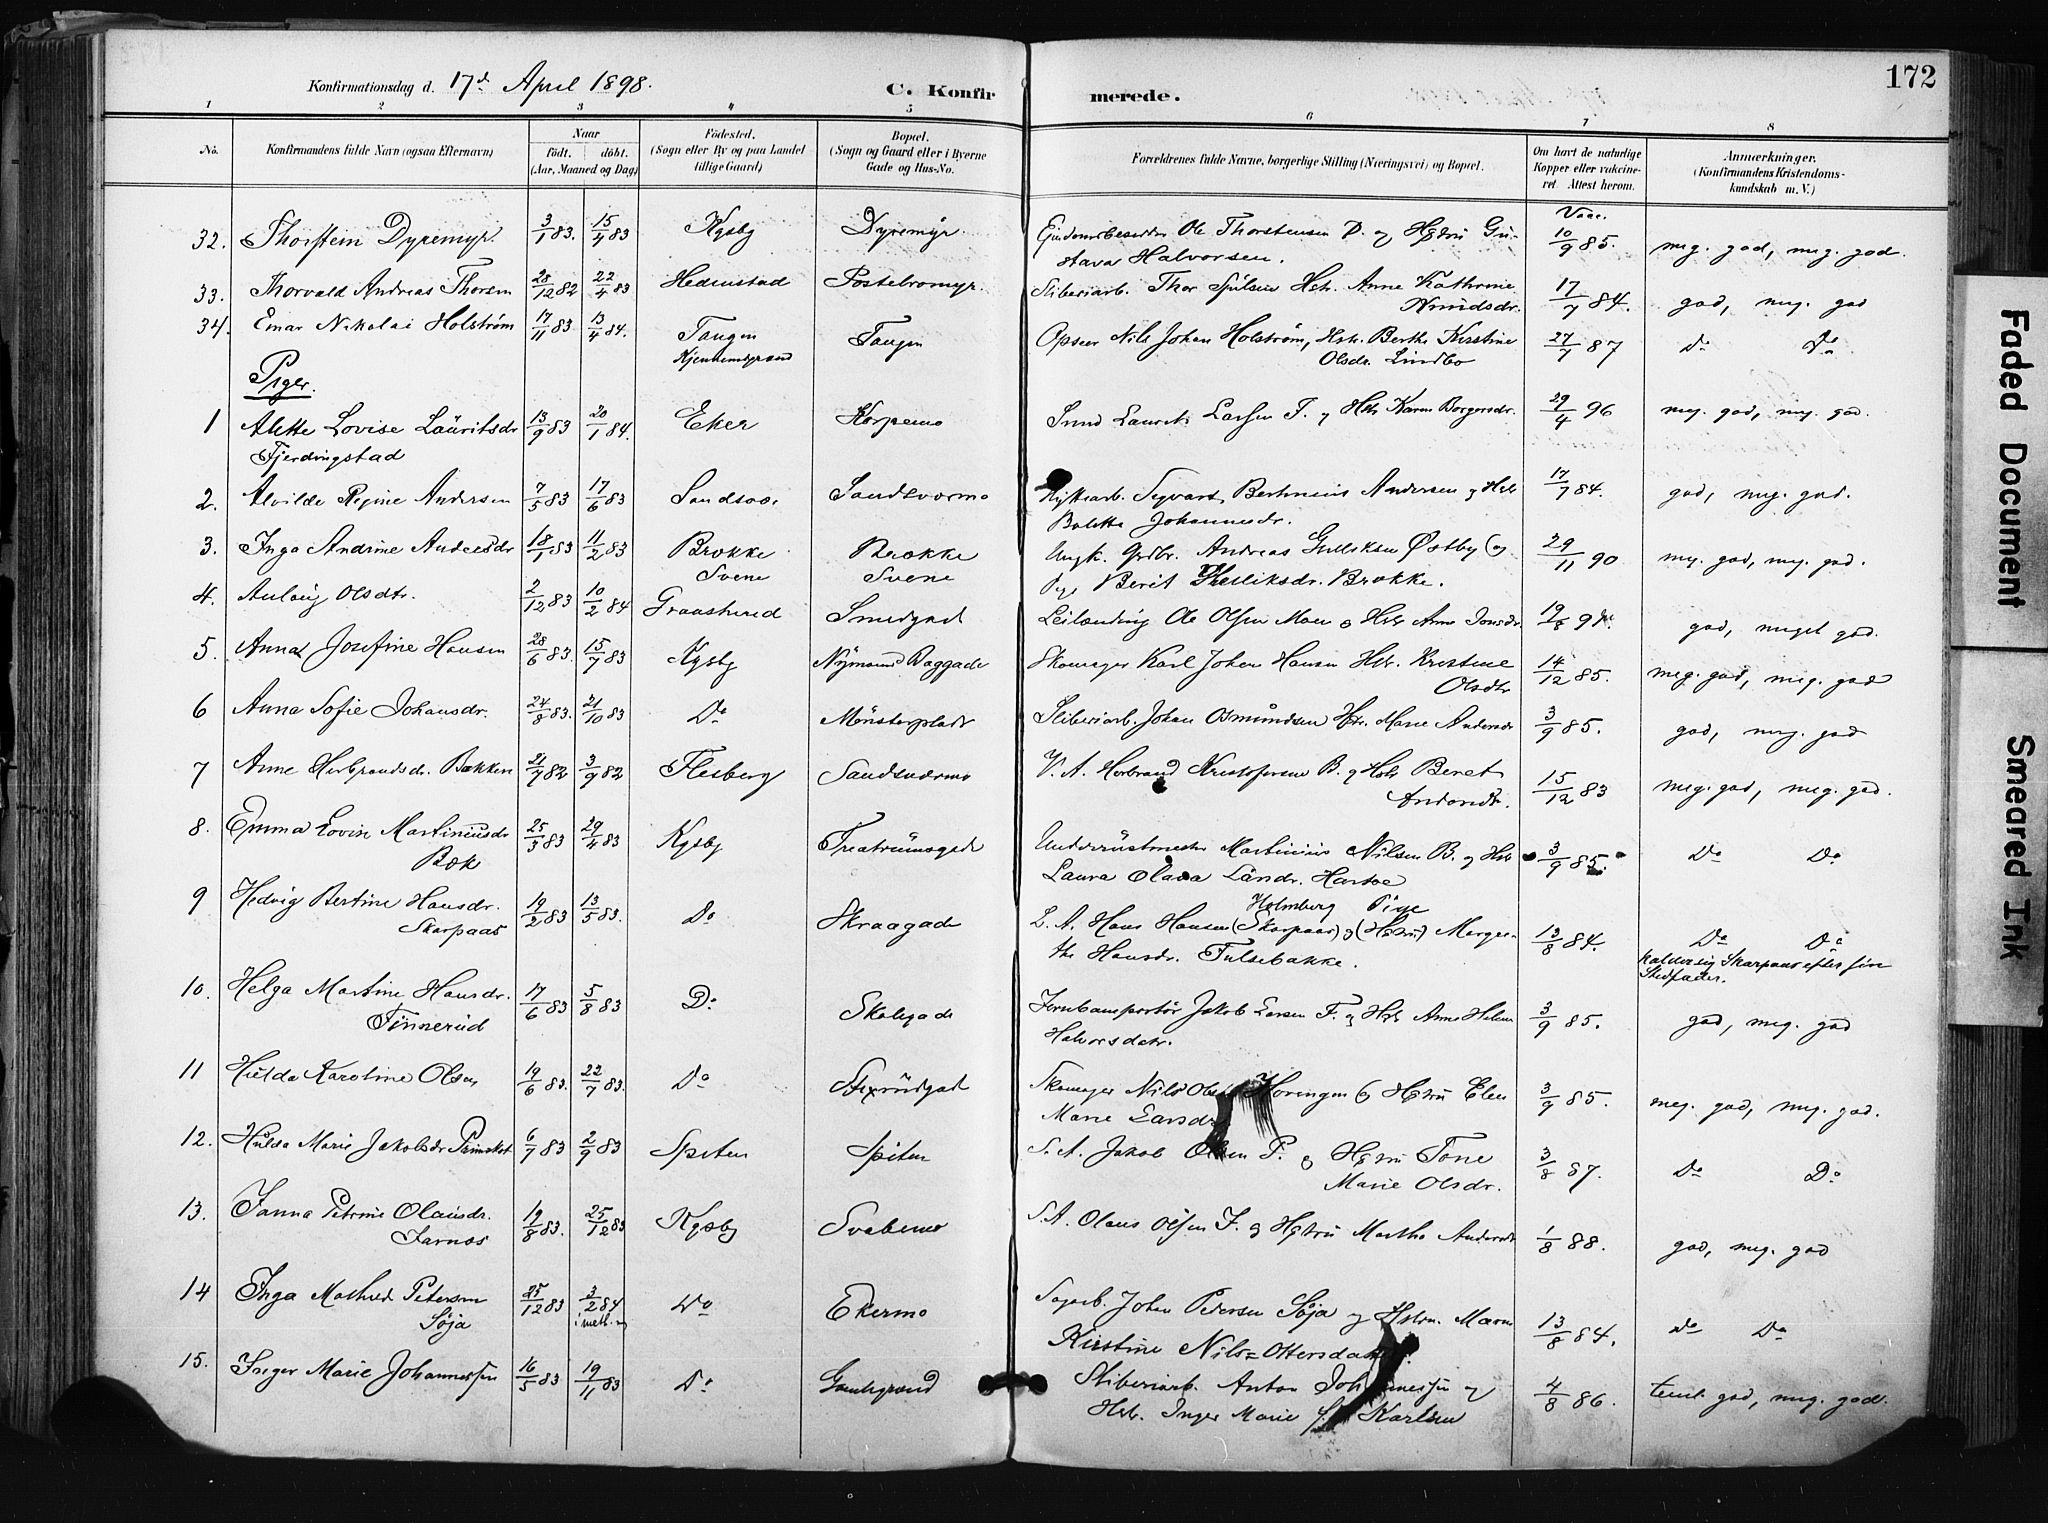 Konfirmationsdag d. 17d April 1898.
C. Konfirmerede.
172
1 2 3 4 5 6 7 8
No. Konfirmandens fulde Navn (ogsaa Efternavn) Naar födt. döbt. (Aar, Maaned og Dag) Födested. (Sogn eller By og paa Landet tillige Gaard) Bopæl. (Sogn og Gaard eller i Byerne Gade og Hus-No. Forældrenes fulde Navne, borgerlige Stilling (Næringsvei) og Bopæl. Om havt de naturlige Kopper eller vaccineret. Attest herom. Anmærkninger. (Konfirmandens Kristendomskundskab m. V.)
Vacc.
32. Thorstein Dyremyr. 3/1 83. 15/4 83 Kgsbg Dyremyr. Eiendomsbesidder Ole Thorstensen D. og Hustru Gustava Halvorsen. 10/9 85. meg. god, meg. god.
33. Thorvald Andreas Thorsen 28/12 82 22/4 83 Hedenstad Postebromyr. Sliberiarb. Thor Hstr. Anne Kathrine Knudsdr. 17/7 84. god, meg. god
34. Einar Nikolai Holstrøm 17/11 83 13/4 84. Tangen Tangen Opseer Nils Johan Holstrøm, Hstr. Berthe Kirstine Olsdr. Lindbo 27/7 87 Do Do
Piger.
1 Alette Lovise Lauritsdr Fjerdingstad 13/9 83 20/1 84. Eker Korpemo Smed Laurits Larsen F. og Hstr Karen Borgersdr. 29/4 96 meg. god, meg. god.
2. Alvilde Regine Andersen 7/5 83 17/6 83 Sandsvær Sandsværmo Hyttearb. Syvert Berhnius Andersen og Hstr Bolette Johannesdr. 17/7 84. god, meg. god.
3. Inga Andrine Andersdr 18/1 83 11/2 83 Brække Svene Brække Svene Ungk. Grdbr. Andreas Gulliksen Østby (og Pige Berit Brække. 29/11 90 meg. god, meg. god.
4. Aulaug Olsdtr. 2/12 83 10/2 84 Graasteerud Smedgad Leilænding Ole Olsen Moen og Hstr Anne Jonsdr. 19/8 god, meget god.
5. Anna Josefine Hansen 28/6 83. 15/7 83 Kgsbg Nymoens Baggade Skomager Karl Johan Hansen Hstr. Kristine Olsdtr 14/12 85. meg. god, meg. god
6 Anna Sofie Johansdr. 24/8 83. 21/10 83 Do Mønsterplads Sliberiarb. Johan Osmundsen Hstr. Marie Andersdr 3/9 85. god, meg. god
7 Anne Herbrandsdr. Bækken 21/7 82 3/9 82 Flesberg Sandsværmo V. A. Herbrand Kristofersen B. og Hstr Beret Andersdr. 15/12 83 meg. god, meg. god.
8. Emma Lovise Martiniusdr Bæk 25/3 83 29/4 83 Kgsbg Treatrümsgade Underrustmester Martinius Nilsen B. og Hstr Laura Olava Larsdr. 3/9 85. Do Do
9 Hedvig Bertine Hansdr. Skarpaas 19/2 83 13/5 83. Do Skraagade S. A. Hans Hansen (Skarpaas) Holmberg og (Hustru) Pige Margrethe Hansdr. Tulsebakke. 13/8 84. Do Do kalder sig Skarpaas efter sin Stedfader.
10. Helga Martine Hansdr. Finnerud 17/6 83 5/8 83 Do Skolegade Jernbaneportør Jakob Larsen F. og Hstr Anne Helene Halvorsdatr. 3/9 85. god, meg. god
11 Hulda Karoline Olsen 19/6 83. 22/7 83. Do Stexrüdgad Skomager Nils Olsen Horingen og Hustru Elen Marie Larsdr. 3/9 85. meg. god, meg. god.
12. Hulda Marie Jakobsdr Prinsket 6/7 83 2/9 83 Spiten Spiten S. A. Jakob Olsen P. og Hustru Tone Marie Olsdr. 3/8 87. Do Do
13. Janna Petrine Olausdr. Jarnæs 19/8 83. 25/12 83 Kgsbg Svabemo S. A. Olaus Olsen J. og Hustru Marthe Andersdr 1/8 88. god, meg. god
14 Inga Mathea Petersen Søja 25/12 83 3/2 84 i meth. Do Ekermo Sagarb. Johan Pedersen Søja og Hstru. Maren Kirstine Nils= Ottersdater. 13/8 84. Do Do
15. Inger Marie Johannessen 16/5 83 19/11 83 Do Gamlegrænd Sliberiarb. Anton Johannessen og Hstr. Inger Marie Karlsen 4/8 86. teml. god, meg. god.
Faded Document
Smeared Ink